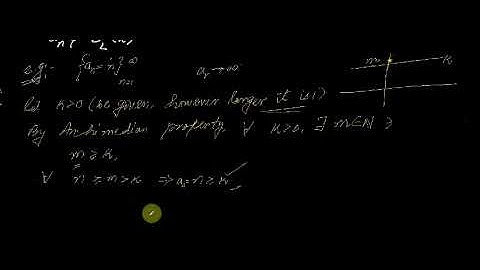 e.g:- {aₙ = n}∞ n=1 aₙ → ∞
m K
Let K>0 (be given, however longer it is)
By Archimedian property ∀ K>0, ∃ m∈N ∋
m ≥ K,
∀ n ≥ m > K ⇒ aₙ = n ≥ K